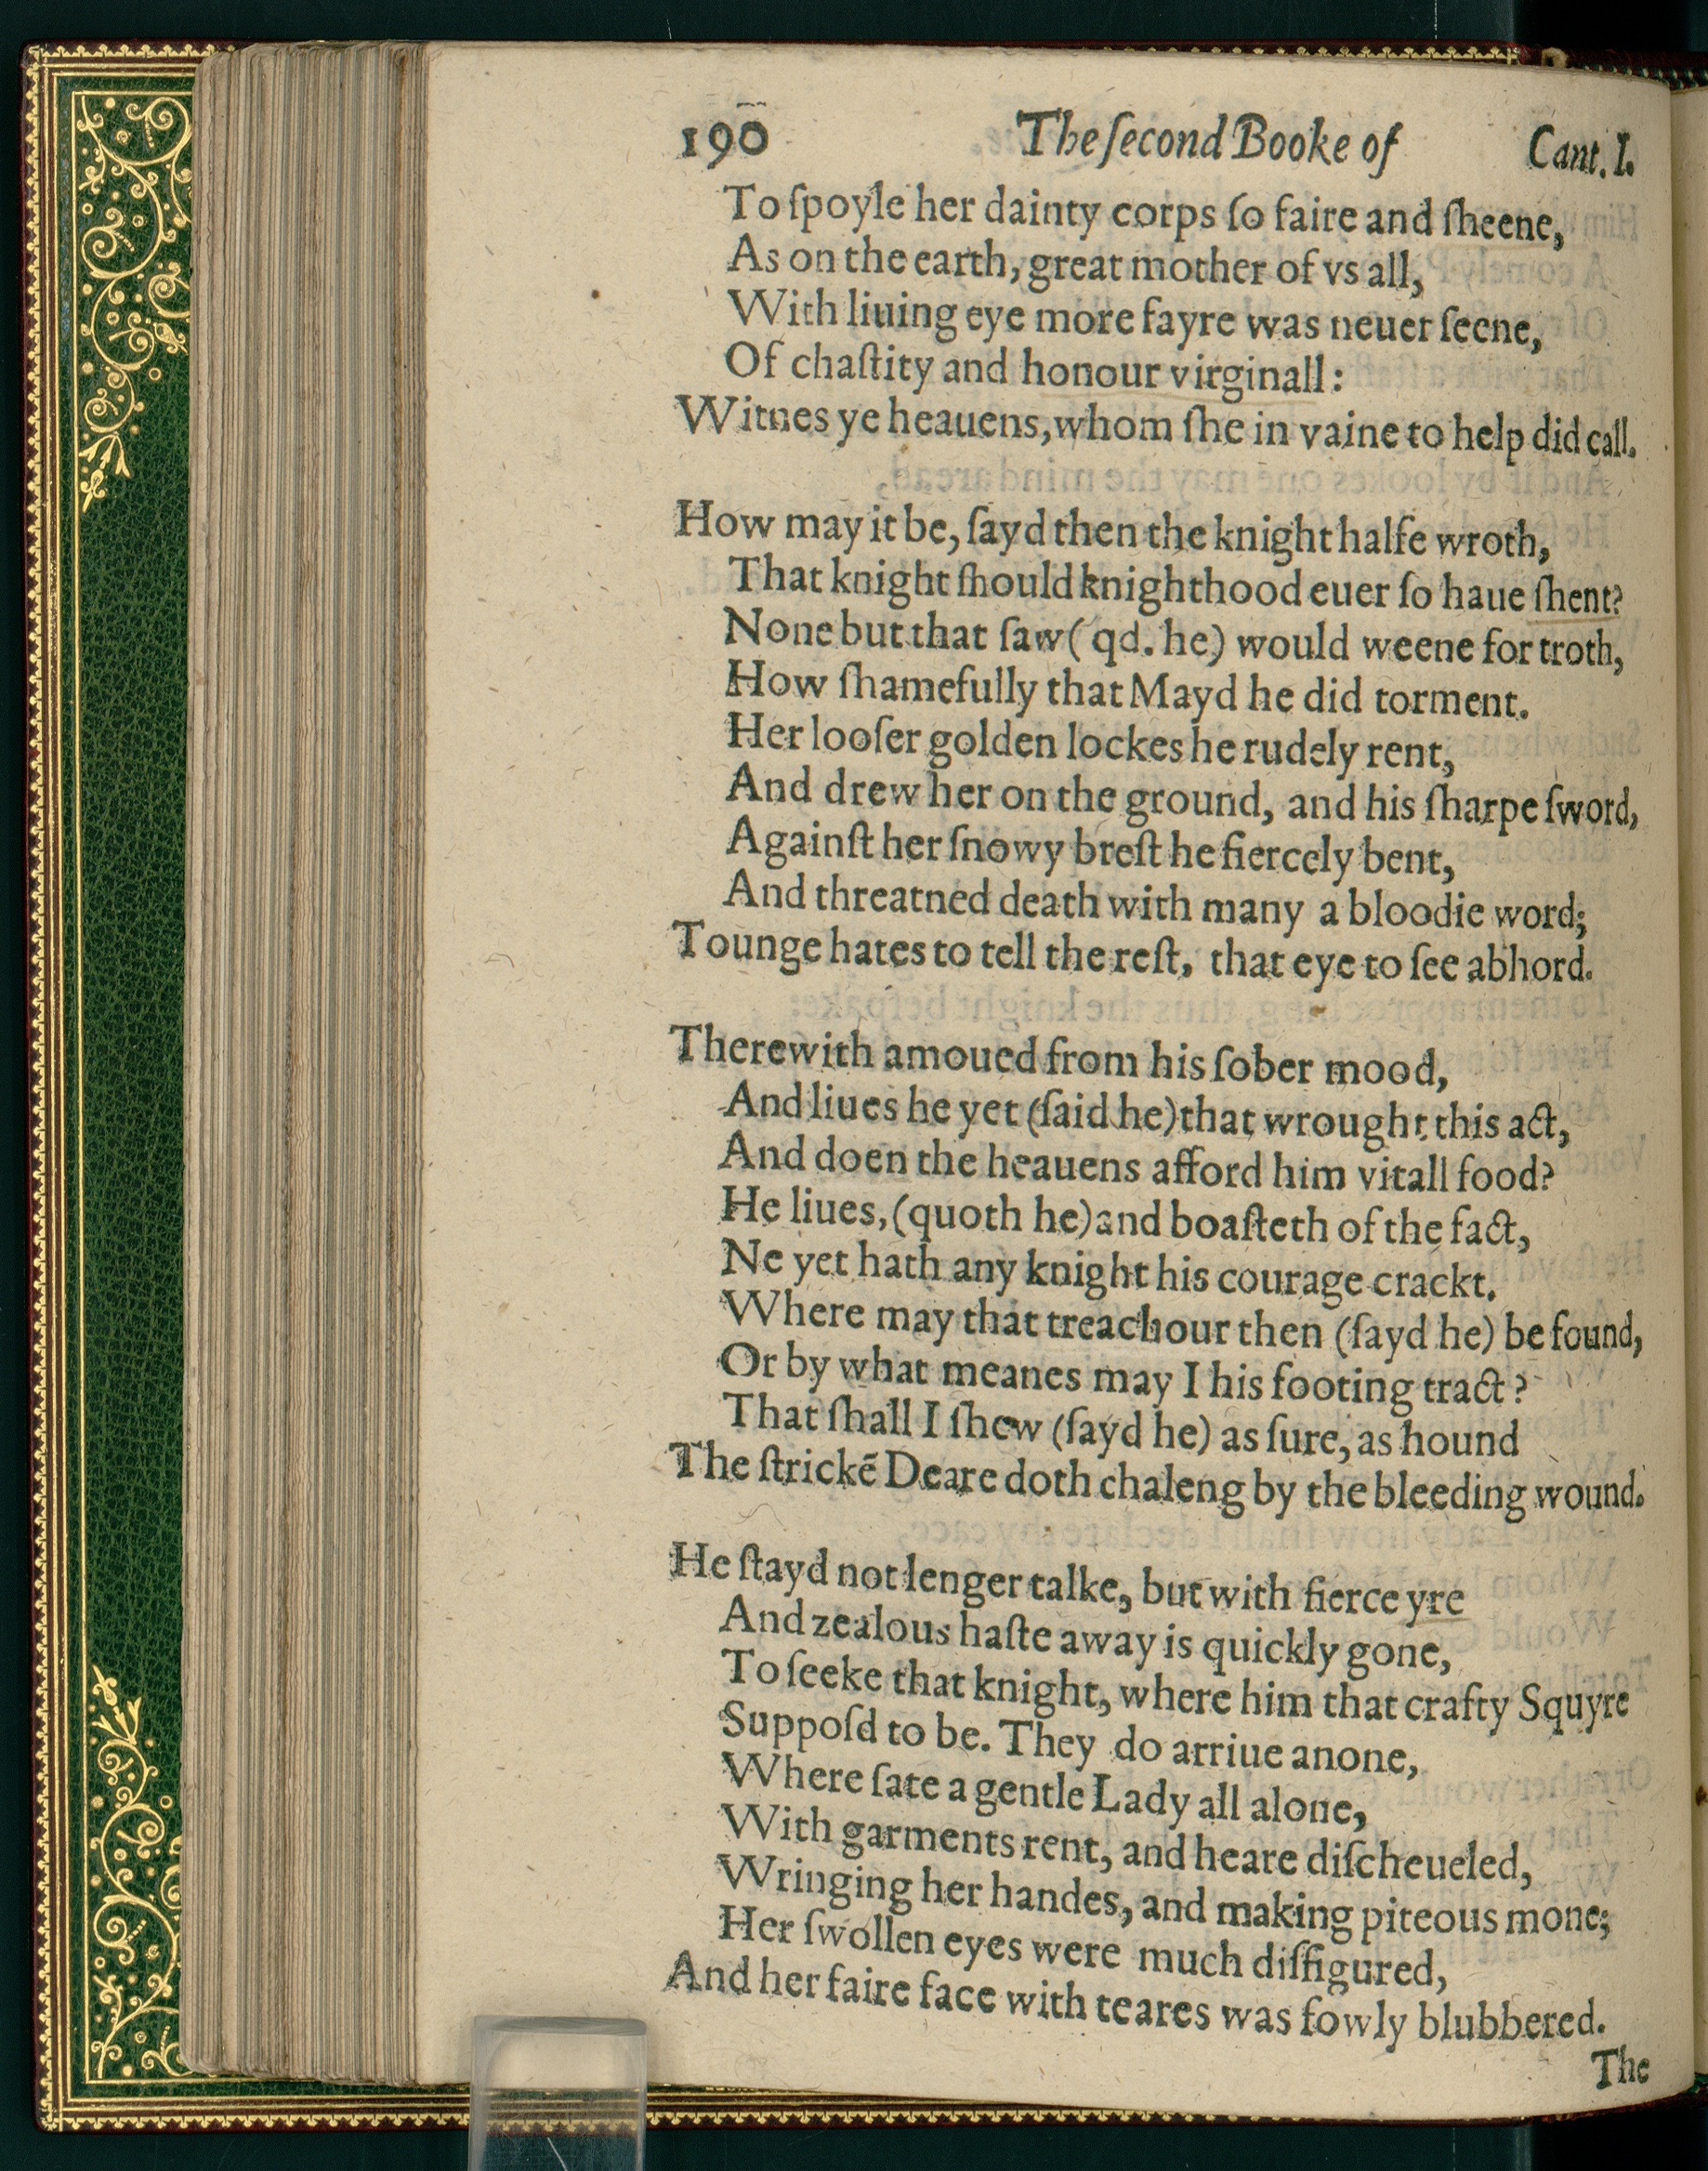 190 The ſecond Booke of Cant. I.
To ſpoyle her dainty corps ſo faire and ſheene,
As on the earth, great mother of vs all,
With liuing eye more fayre was neuer ſeene,
Of chaſtity and honour virginall:
Witnes ye heauens, whom ſhe in vaine to help did call.
How may it be, ſayd then the knight halfe wroth,
That knight ſhould knighthood euer ſo haue ſhent?
None but that ſaw (qd. he) would weene for troth,
How ſhamefully that Mayd he did torment.
Her looſer golden lockes he rudely rent,
And drew her on the ground, and his ſharpe ſword,
Againſt her ſnowy breſt he fiercely bent,
And threatned death with many a bloodie word;
Tounge hates to tell the reſt, that eye to ſee abhord.
Therewith amoued from his ſober mood,
And liues he yet (ſaid he) that wrought this act,
And doen the heauens afford him vitall food?
He liues, (quoth he) and boaſteth of the fact,
Ne yet hath any knight his courage crackt.
Where may that treachour then (ſayd he) be found,
Or by what meanes may I his footing tract?
That ſhall I ſhew (ſayd he) as ſure, as hound
The ſtrickē Deare doth chaleng by the bleeding wound.
He ſtayd not lenger talke, but with fierce yre
And zealous haſte away is quickly gone,
To ſeeke that knight, where him that crafty Squyre
Suppoſd to be. They do arriue anone,
Where ſate a gentle Lady all alone,
With garments rent, and heare diſcheueled,
Wringing her handes, and making piteous mone;
Her ſwollen eyes were much diſfigured,
And her faire face with teares was fowly blubbered.
The